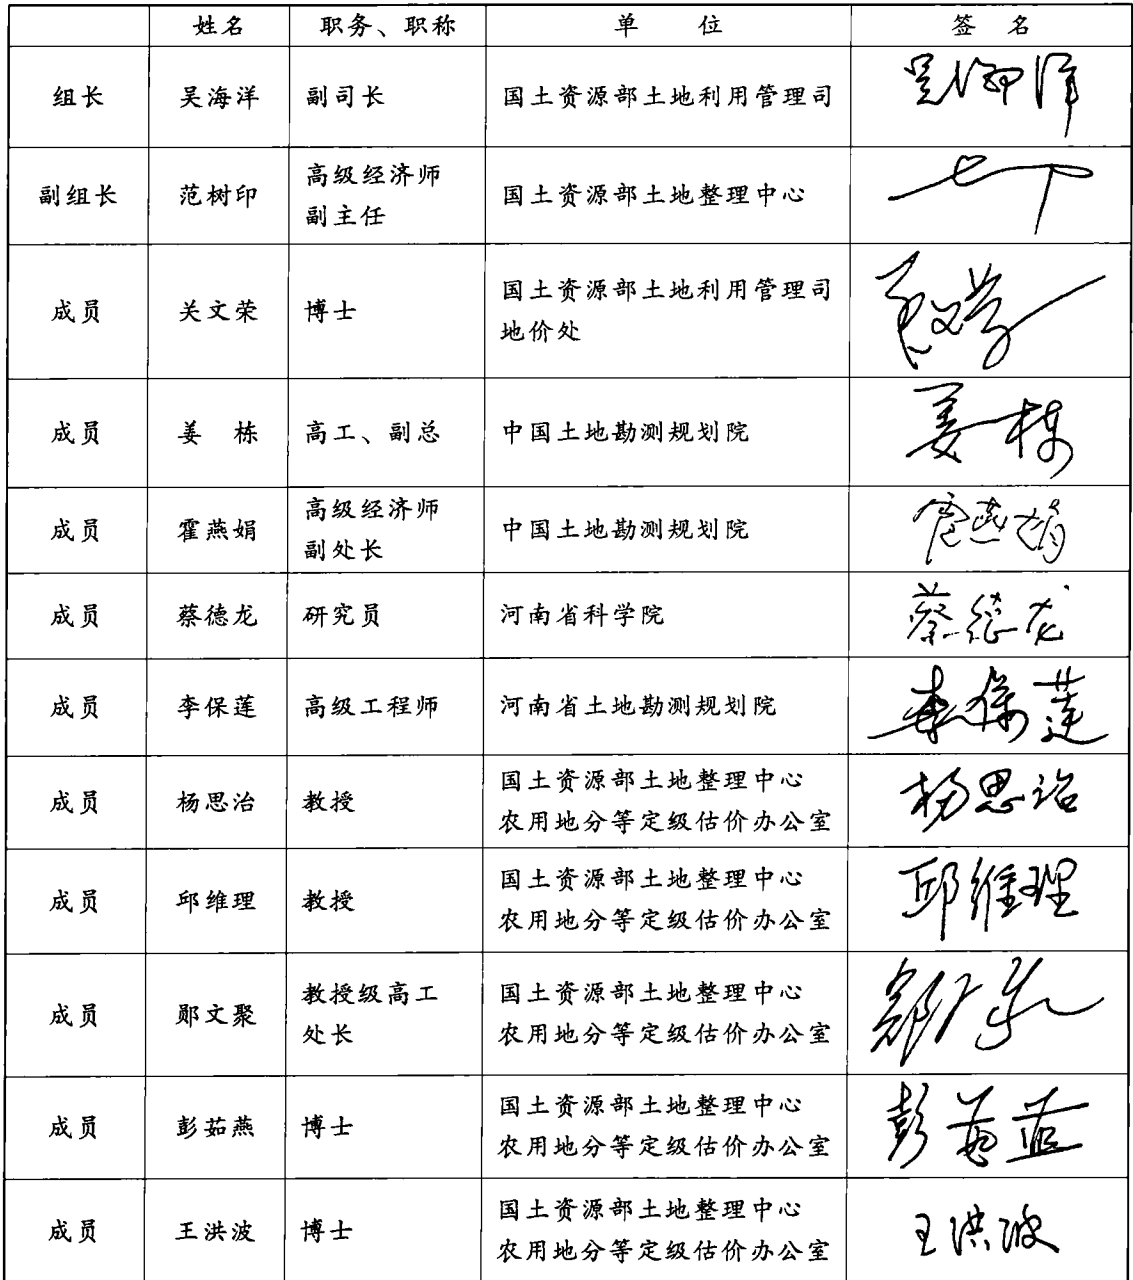 姓名 职务、职称 单 位 签 名
组长 吴海洋 副司长 国土资源部土地利用管理司 吴海洋
副组长 范树印 高级经济师 国土资源部土地整理中心
副主任
成员 关文荣 博士 国土资源部土地利用管理司
地价处
成员 姜 栋 高工、副总 中国土地勘测规划院 姜栋
成员 霍燕娟 高级经济师 中国土地勘测规划院 霍燕娟
副处长
成员 蔡德龙 研究员 河南省科学院 蔡德龙
成员 李保莲 高级工程师 河南省土地勘测规划院 李保莲
成员 杨思治 教授 国土资源部土地整理中心 杨思治
农用地分等定级估价办公室
成员 邱维理 教授 国土资源部土地整理中心 邱维理
农用地分等定级估价办公室
成员 郧文聚 教授级高工 国土资源部土地整理中心
处长 农用地分等定级估价办公室
成员 彭茹燕 博士 国土资源部土地整理中心 彭茹燕
农用地分等定级估价办公室
成员 王洪波 博士 国土资源部土地整理中心 王洪波
农用地分等定级估价办公室